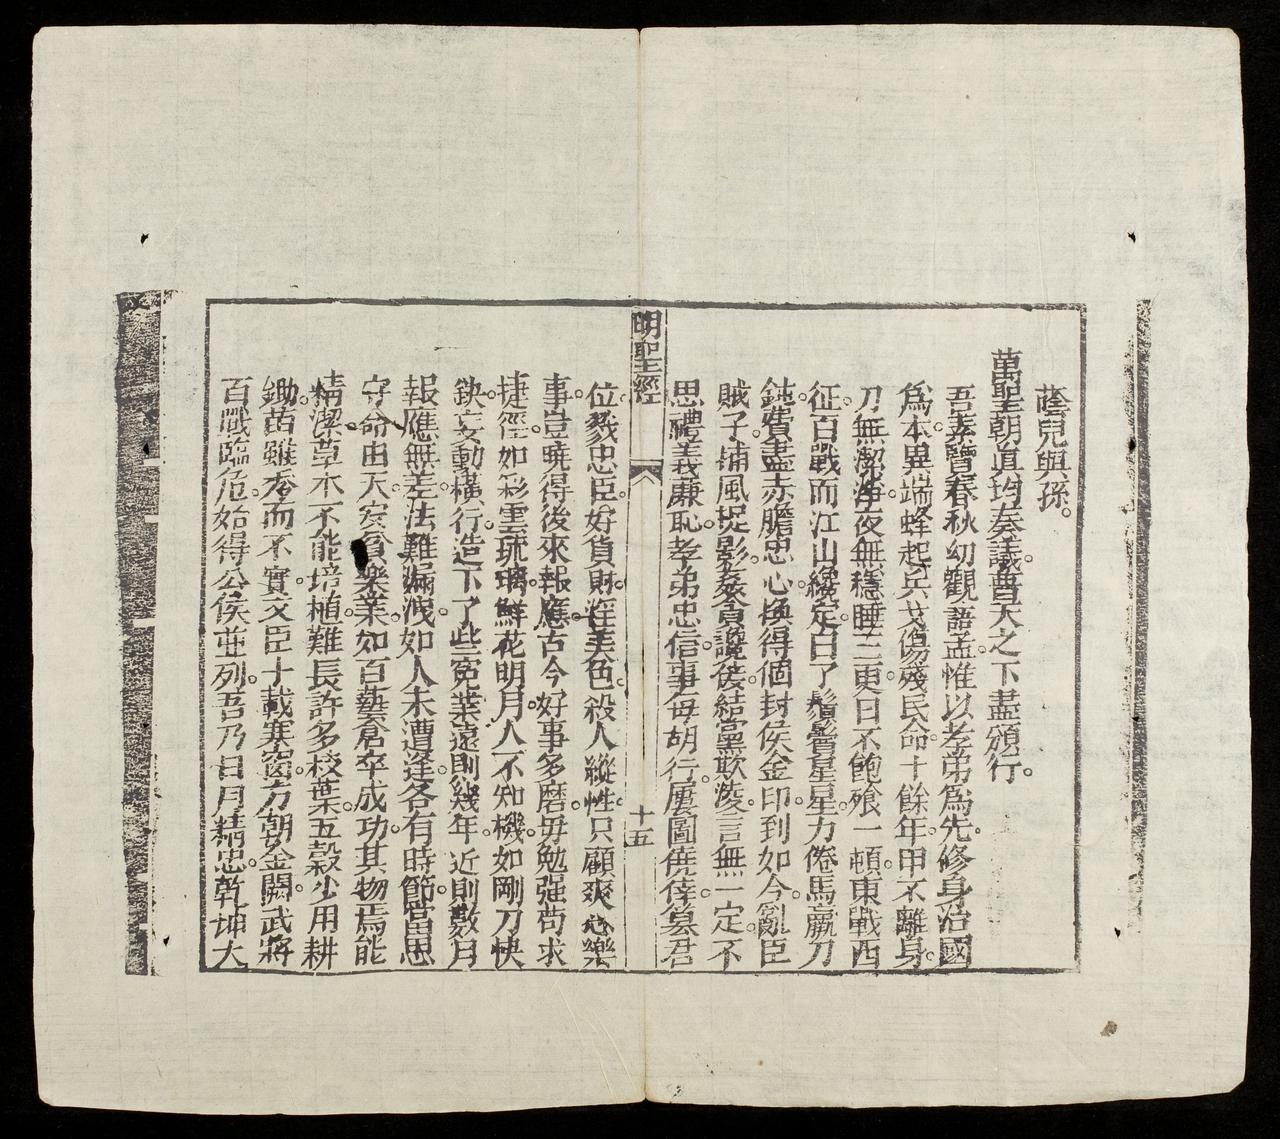 蔭兒與孫。
萬聖朝眞均奏議。普天之下盡頒行。
吾素覽春秋幼觀語孟。惟以孝弟爲先。修身治國
爲本。異端蜂起兵戈傷殘民命。十餘年甲不離身。
刀無潔淨。夜無穩睡三更。日不飽飧一頓。東戰西
征。百戰而江山纔定。白了鬚鬢星星。力倦馬羸刀
鈍。費盡赤膽忠心。換得個封侯金印。到如今。亂臣
賊子。捕風捉影。姦貪讒佞。結黨欺凌。言無一定。不
思禮義廉恥。孝弟忠信。事每胡行。屢圖僥倖。篡君
明聖經
十五
位。戮忠臣。好貨財。淫美色。殺人縱性。只顧爽心樂
事。豈曉得後來報應。古今好事多磨。毋勉强苟求
捷徑。如彩雲琉璃。鮮花明月。人不知機。如剛刀快
鈌。妄動橫行。造下了些寃業。遠則幾年。近則數月
報應無差。法難漏洩。如人未遭逢。各有時節。當思
守命由天。安貧樂業。如百藝倉卒成功。其物焉能
精潔。草木不能培植。難長許多枝葉。五穀少用耕
鋤。苗雖秀而不實。文臣十載寒窗。方朝金闕。武將
百戰臨危。始得公侯並列。吾乃日月精忠。乾坤大